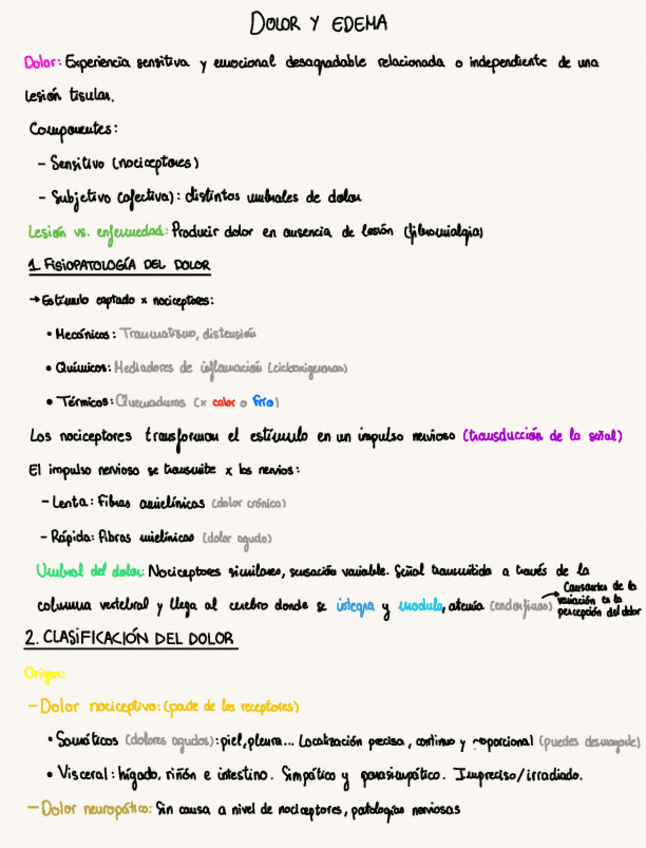 DOLOR Y EDEMA
Dolor: Experiencia sensitiva y emocional desagradable relacionada o independiente de una
lesión tisular.
Componentes:
- Sensitivo (nociceptores)
- Subjetivo (afectiva): distintos umbrales de dolor
Lesión vs. enfermedad: Producir dolor en ausencia de lesión (fibromialgia)
1. FISIOPATOLOGÍA DEL DOLOR
→ Estímulo captado x nociceptores:
• Mecánicos: Traumatismo, distensión
• Químicos: Mediadores de inflamación (ciclooxigenasas)
• Térmicos: Quemaduras (x calor o frío)
Los nociceptores transforman el estímulo en un impulso nervioso (transducción de la señal)
El impulso nervioso se transmite x los nervios:
- Lenta: Fibras amielínicas (dolor crónico)
- Rápida: Fibras mielínicas (dolor agudo)
Umbral del dolor: Nociceptores similares, sensación variable. Señal transmitida a través de la
columna vertebral y llega al cerebro donde se integra y modula, atenúa (endorfinas) → Causantes de la
variación en la
percepción del dolor
2. CLASIFICACIÓN DEL DOLOR
Origen:
- Dolor nociceptivo: (parte de los receptores)
• Somáticos (dolores agudos): piel, pleura... Localización precisa, continuo y roporcional (puedes desmayarte)
• Visceral: hígado, riñón e intestino. Simpático y parasimpático. Impreciso/irradiado.
- Dolor neuropático: Sin causa a nivel de nociceptores, patologías nerviosas